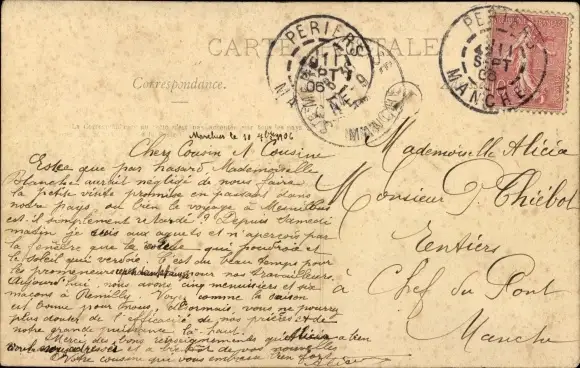 CARTE POSTALE
Correspondance.
PERIERS
11
SEPT
06
MANCHE
PERIERS
11
SEPT
06
MANCHE
le 11 7bre 1906
Chers Cousin et Cousine
Est-ce que par hasard Mademoiselle
Blanche aurait négligé de nous faire
la petite visite promise en passant dans
notre pays, ou bien le voyage à
est-il simplement retardé? Depuis Samedi
matin je suis aux aguets et n'aperçois par
la fenêtre que la qui poudroie et
le soleil qui verdoie. C'est du beau temps pour
les promeneurs pour nos travailleurs,
Aujourd'hui, nous avons cinq menuisiers et six
maçons à Remilly. Voyez comme la saison
est bonne pour nous, désormais, vous ne pouvez
plus douter de l'efficacité de nos prières et de
notre grande puissance là-haut.
Merci des bons renseignements qu'Alicia a bien
et à bientôt de vos nouvelles
Votre cousine qui vous embrasse bien fort
Mademoiselle Alicia
Monsieur P. Thiébot
Rentiers
à Chef du Pont
Manche